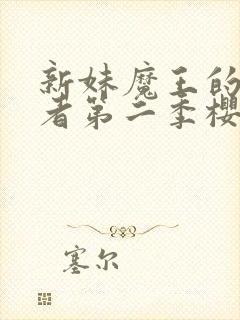 新妹魔王的
者第二季樱
塞尔